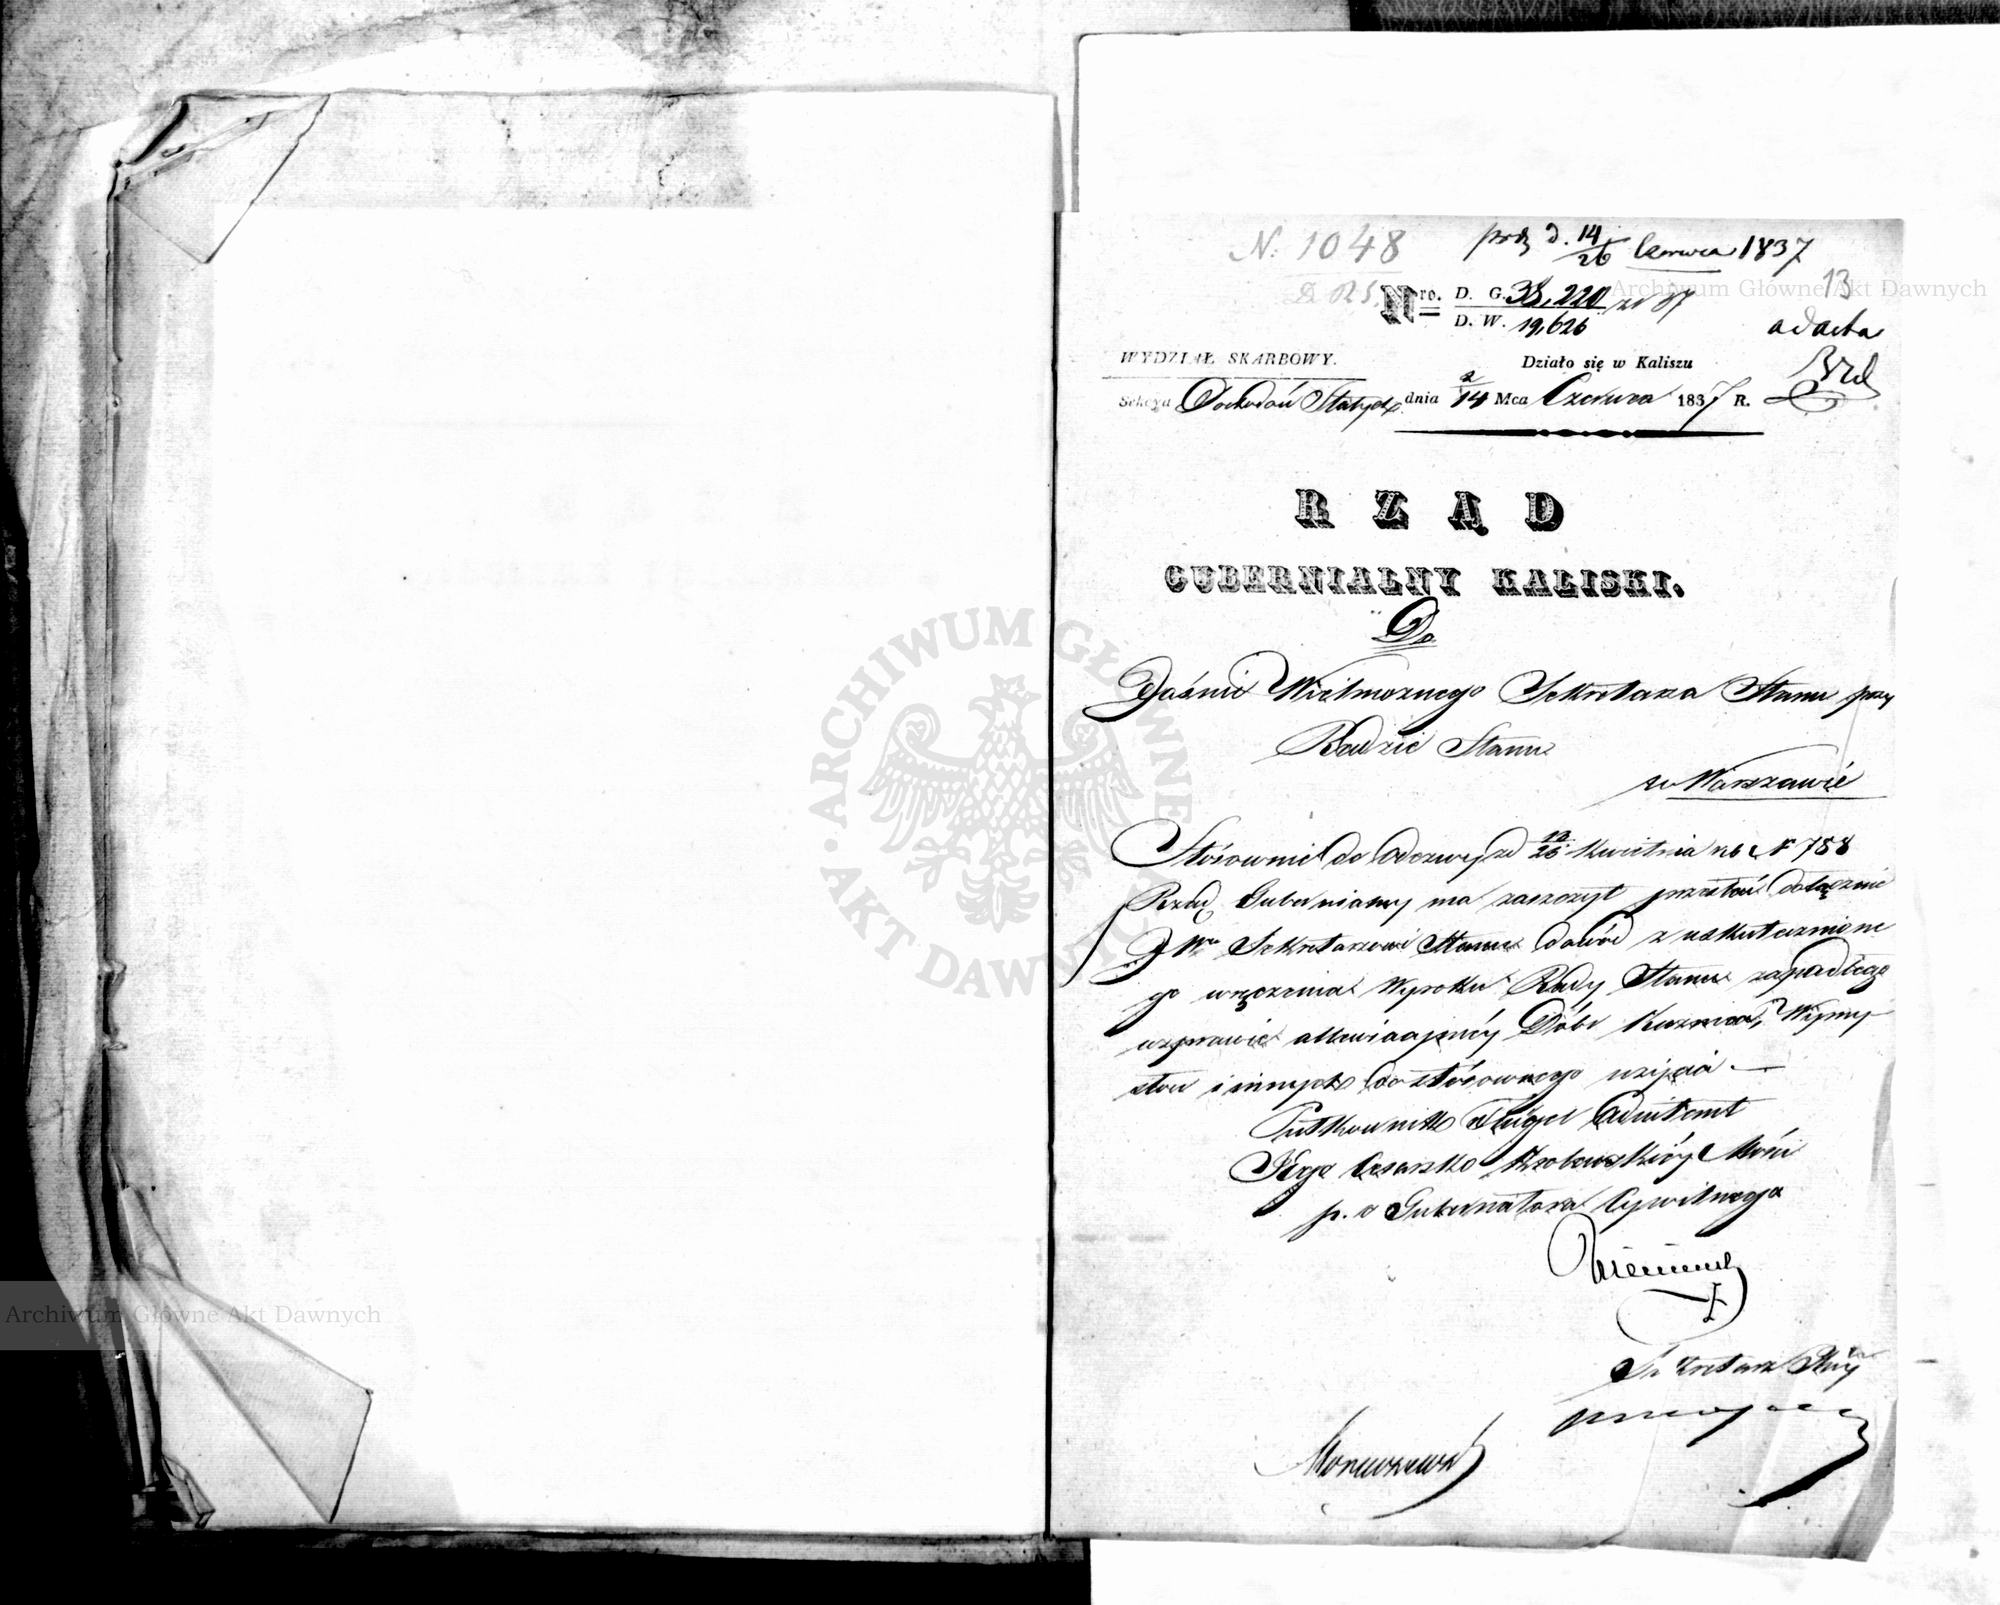 N. 1048
prz d. 14/26 Czerwca 1837
13
Nro. D. G. 38,220 z 37
D. W. 19,626
ad acta
WYDZIAŁ SKARBOWY.
Działo się w Kaliszu
Sekcya Dochodów Stałych dnia 2/14 Mca Czerwca 1837 R.
RZĄD
GUBERNIALNY KALISKI.
Do
Jaśnie Wielmożnego Sekretarza Stanu przy
Radzie Stanu
w Warszawie
Stósownie do odezwy zd /26 Kwietnia rb N 788
Rząd Gubernialny ma zaszczyt przesłać dołącznie
JWu Sekretarzowi Stanu dowód z uskutecznione
go wręczenia Wyroku Rady Stanu zapadłego
w sprawie Dóbr Kuznica, Wymy
słow i innych do stósownego użycia. —
Pułkownik Fligel Adiutant
Jego Cesarsko Królewskiéy Mości
p. o Gubernatora Cywilnego
Sekretarz Jlny
ARCHIWUM GŁÓWNE AKT DAWNYCH
Archiwum Główne Akt Dawnych
Archiwum Główne Akt Dawnych